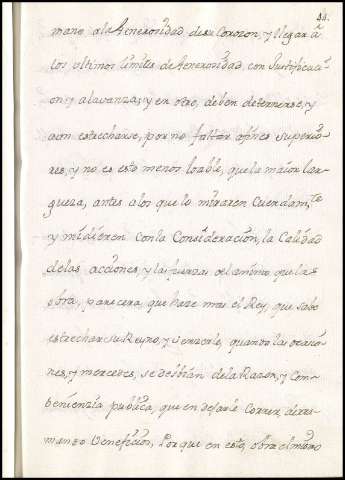 44.
mano a la Generosidad de su Corazon, y llegar â
los ultimos limites de Generosidad, con Justificaci-
on, y alavanza; y en otro, deben detenerse, y
aun estrecharse, por no faltar afines superio-
res, y no es esto menos loable, que la maior lar-
gueza, antes alos que lo miraren Cuerdam.te
y midieren con la Consideracion, la Calidad
de las acciones, y la fuerza del animo que las
obra, parecera, que haze mas el Rey, que sabe
estrechar su Reyno, y Venzerle, quando las ocasio-
nes, y mercedes, se desbian de la Razon, y Com-
benienzia publica, que en dejarle Correr, derra-
mando Veneficios, Porque en esto, obra el mismo